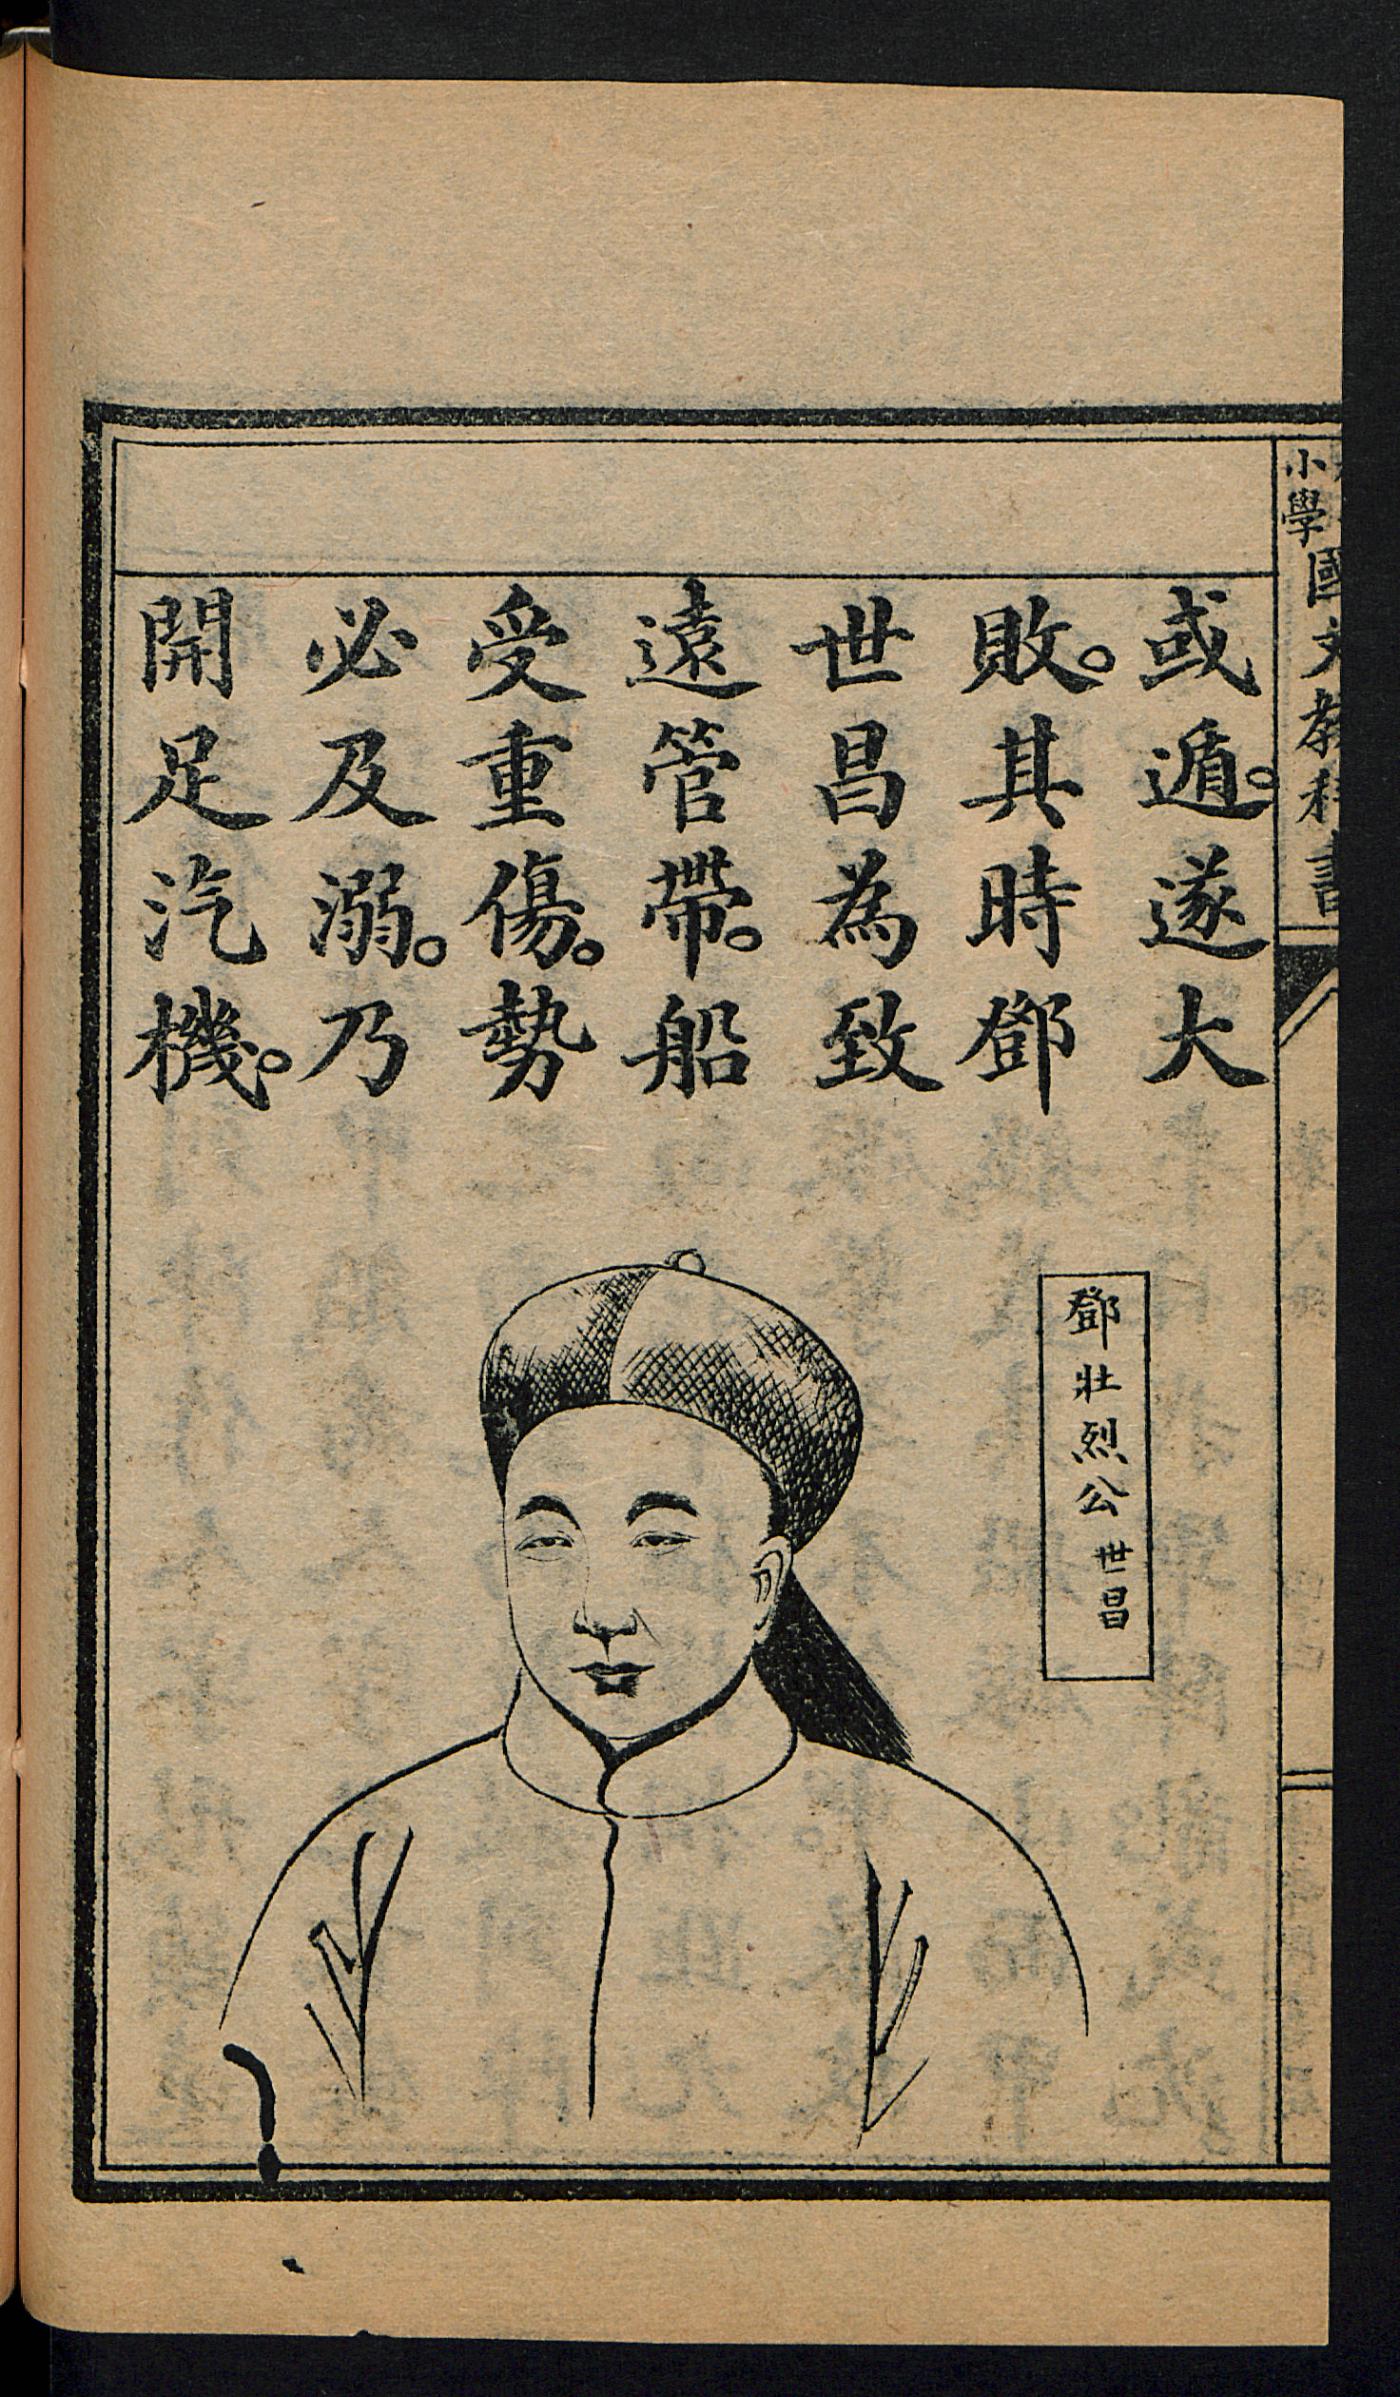 小學國文教科書
或遁。遂大
敗。其時鄧
世昌為致
遠管帶。船
受重傷。勢
必及溺。乃
開足汽機。
鄧壯烈公世昌